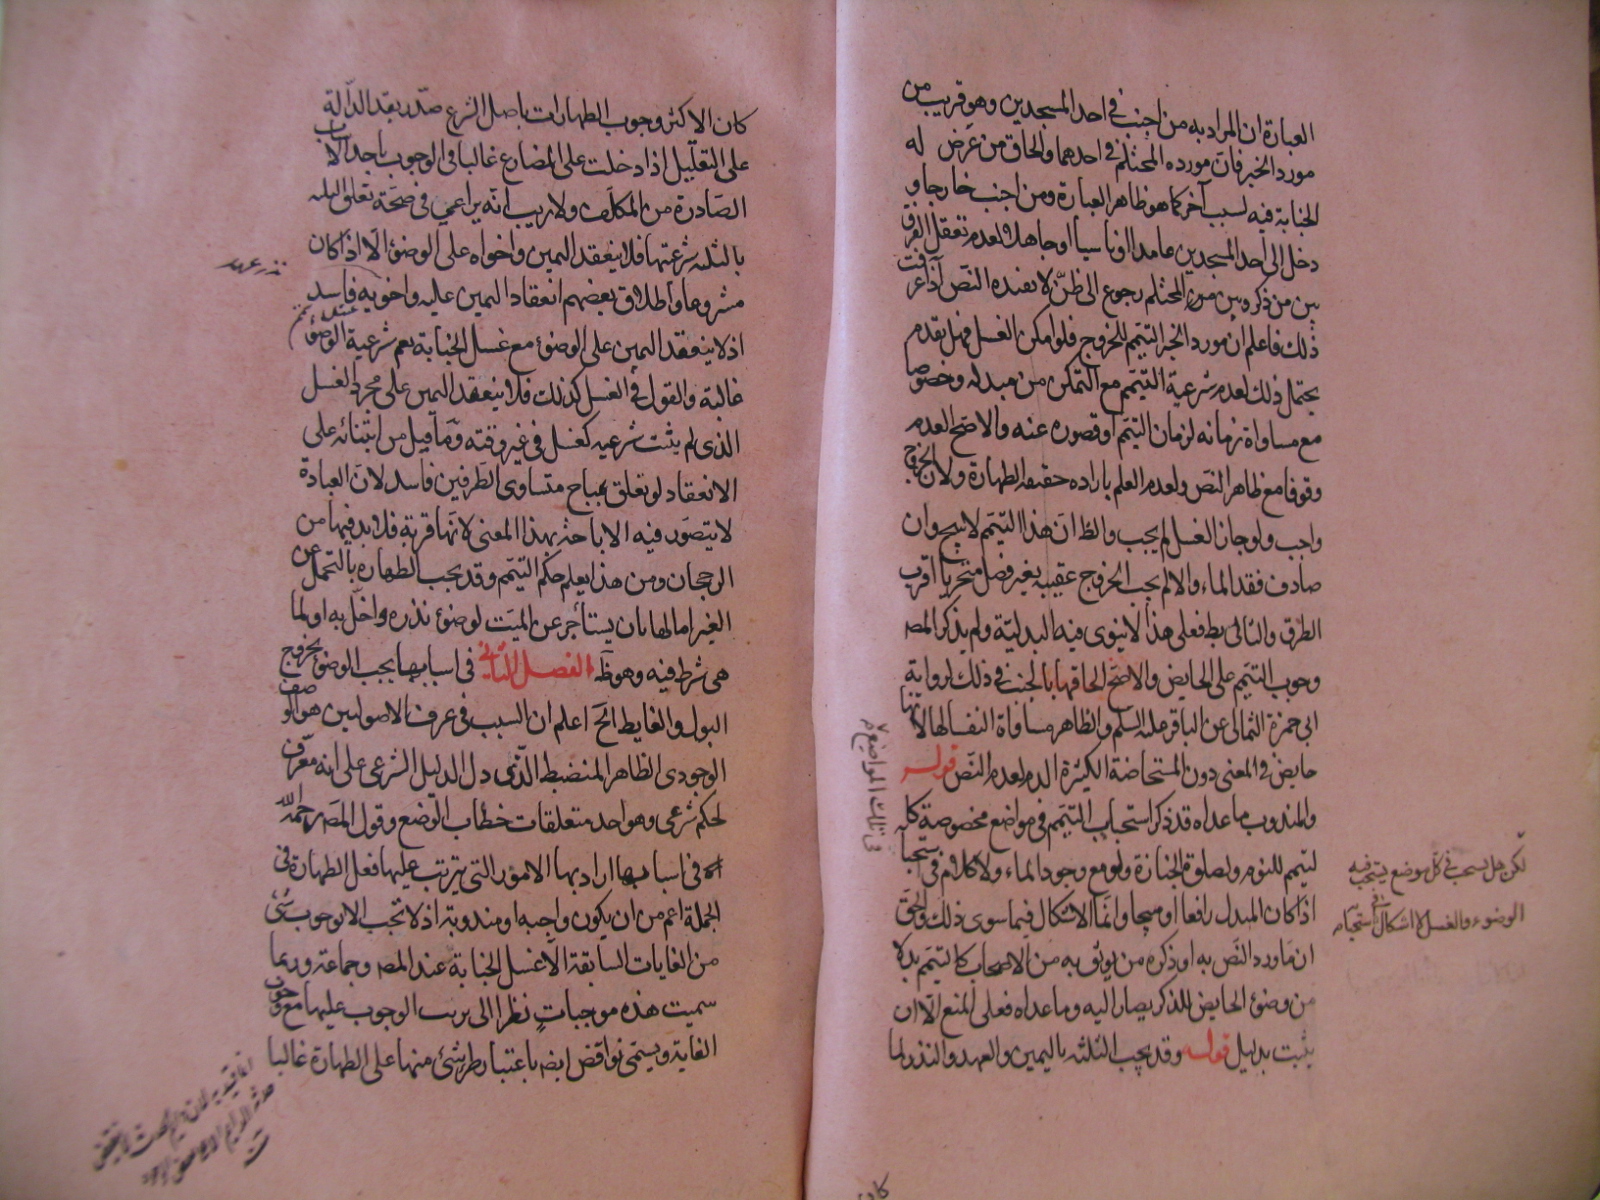 العبارة ان المراد به من اجنب في احد المسجدين وهو قريب من
مورد الخبر فان مورده المحتلم في احدهما والحاق من عرض له
الجنابة فيه لسبب آخر كما هو ظاهر العبارة ومن اجنب خارجا و
دخل الى احد المسجدين عامدا او ناسيا او جاهلا ولعدم تعقل الفرق
بين من ذكر وبين مورد المحتلم رجوع الى ظن لا يفيده النص اذا عرفت
ذلك فاعلم ان مورد الخبر التيمم للخروج فلو امكن الغسل فهل يقدم
يحتمل ذلك لعدم شرعية التيمم مع التمكن من مبدله وخصوصا
مع مساواة زمانه لزمان التيمم او قصوره عنه والاصح العدم
وقوفا مع ظاهر النص ولعدم العلم بارادة حقيقة الطهارة ولان الخروج
واجب ولو جاز الغسل لم يجب والظ ان هذا التيمم لا يبيح وان
صادف فقد الماء والا لم يجب الخروج عقيبه بغير فصل متحريا اقرب
الطرق والتالى بط فعلى هذا لا ينوى فيه البدلية ولم يذكر المصـ
وجوب التيمم على الحايض والاصح الحاقها بالجنب في ذلك لرواية
ابى حمزة الثمالى عن الباقر عليه السلم والظاهر مساواة النفسا لها لانها
حايض في المعنى دون المستحاضة الكثيرة الدم لعدم النص قوله
والمندوب ما عداه قد ذكر استحباب التيمم في مواضع مخصوصة كا
لتيمم للنوم ولصلوة الجنازة ولو مع وجود الماء ولا كلام في استحبا
في تلك المواضيع
اذا كان المبدل رافعا او مبيحا وانما الاشكال فيما سوى ذلك والحق
لكن هل يستحب في كل موضع يستحب فيه
الوضوء والغسل لا اشكال في استحبابه
ان ما ورد النص به او ذكره من يوثق به من الاصحاب كالتيمم بدلا
من وضوء الحايض للذكر يصار اليه وما عداه فعلى المنع الا ان
يثبت بدليل قوله وقد يجب الثلثه باليمين والعهد والنذر لما
كان الاكثر وجوب الطهارات باصل الشرع صدر بقد الدالة
على التقليل اذا دخلت على المضارع غالبا في الوجوب باحد الاسباب
الصادرة من المكلف ولا ريب انه يراعى في صحة تعلق الثلثه
بالثلثه شرعيتها فلا ينعقد اليمين واخواه على الوضوء الا اذا كان
نذر عهد
مشروعا واطلاق بعضهم انعقاد اليمين عليه واخويه فاسد
اذ لا ينعقد اليمين على الوضوء مع غسل الجنابة نعم شرعية الوضوء
غالبة والقول في الغسل كذلك فلا ينعقد اليمين على مجرد الغسل
الذى لم يثبت شرعيه كغسل في غير وقته وما قيل من ابتنائه على
الانعقاد لو تعلق بمباح متساوى الطرفين فاسد لان العبادة
لا يتصور فيه الاباحة بهذا المعنى لانها قربة فلا بد فيها من
الرجحان ومن هذا يعلم حكم التيمم وقد يجب الطهارة بالتحمل عن
الغير اما لها بان يستأجر عن الميت لوضوء نذره واخل به او لما
هى شرط فيه وهو ظ الفصل الثاني في اسبابها يجب الوضوء بخروج
البول والغايط الخ اعلم ان السبب في عرف الاصوليين هو الوصف
الوجودى الظاهر المنضبط الذى دل الدليل الشرعى على انه معرف
لحكم شرعى وهو احد متعلقات خطاب الوضع وقول المصـ رحمه الله
في اسبابها اراد بها الامور التى يترتب عليها فعل الطهارة في
الجملة اعم من ان يكون واجبه او مندوبة اذ لا تجب الا بوجوب شئ
من الغايات السابقة الا غسل الجنابة عند المصـ وجماعة وربما
سميت هذه موجبات نظرا الى ترتب الوجوب عليها مع وجوب
الغاية ويسمى نواقض ايضا باعتبار طرو شئ منها على الطهارة غالبا